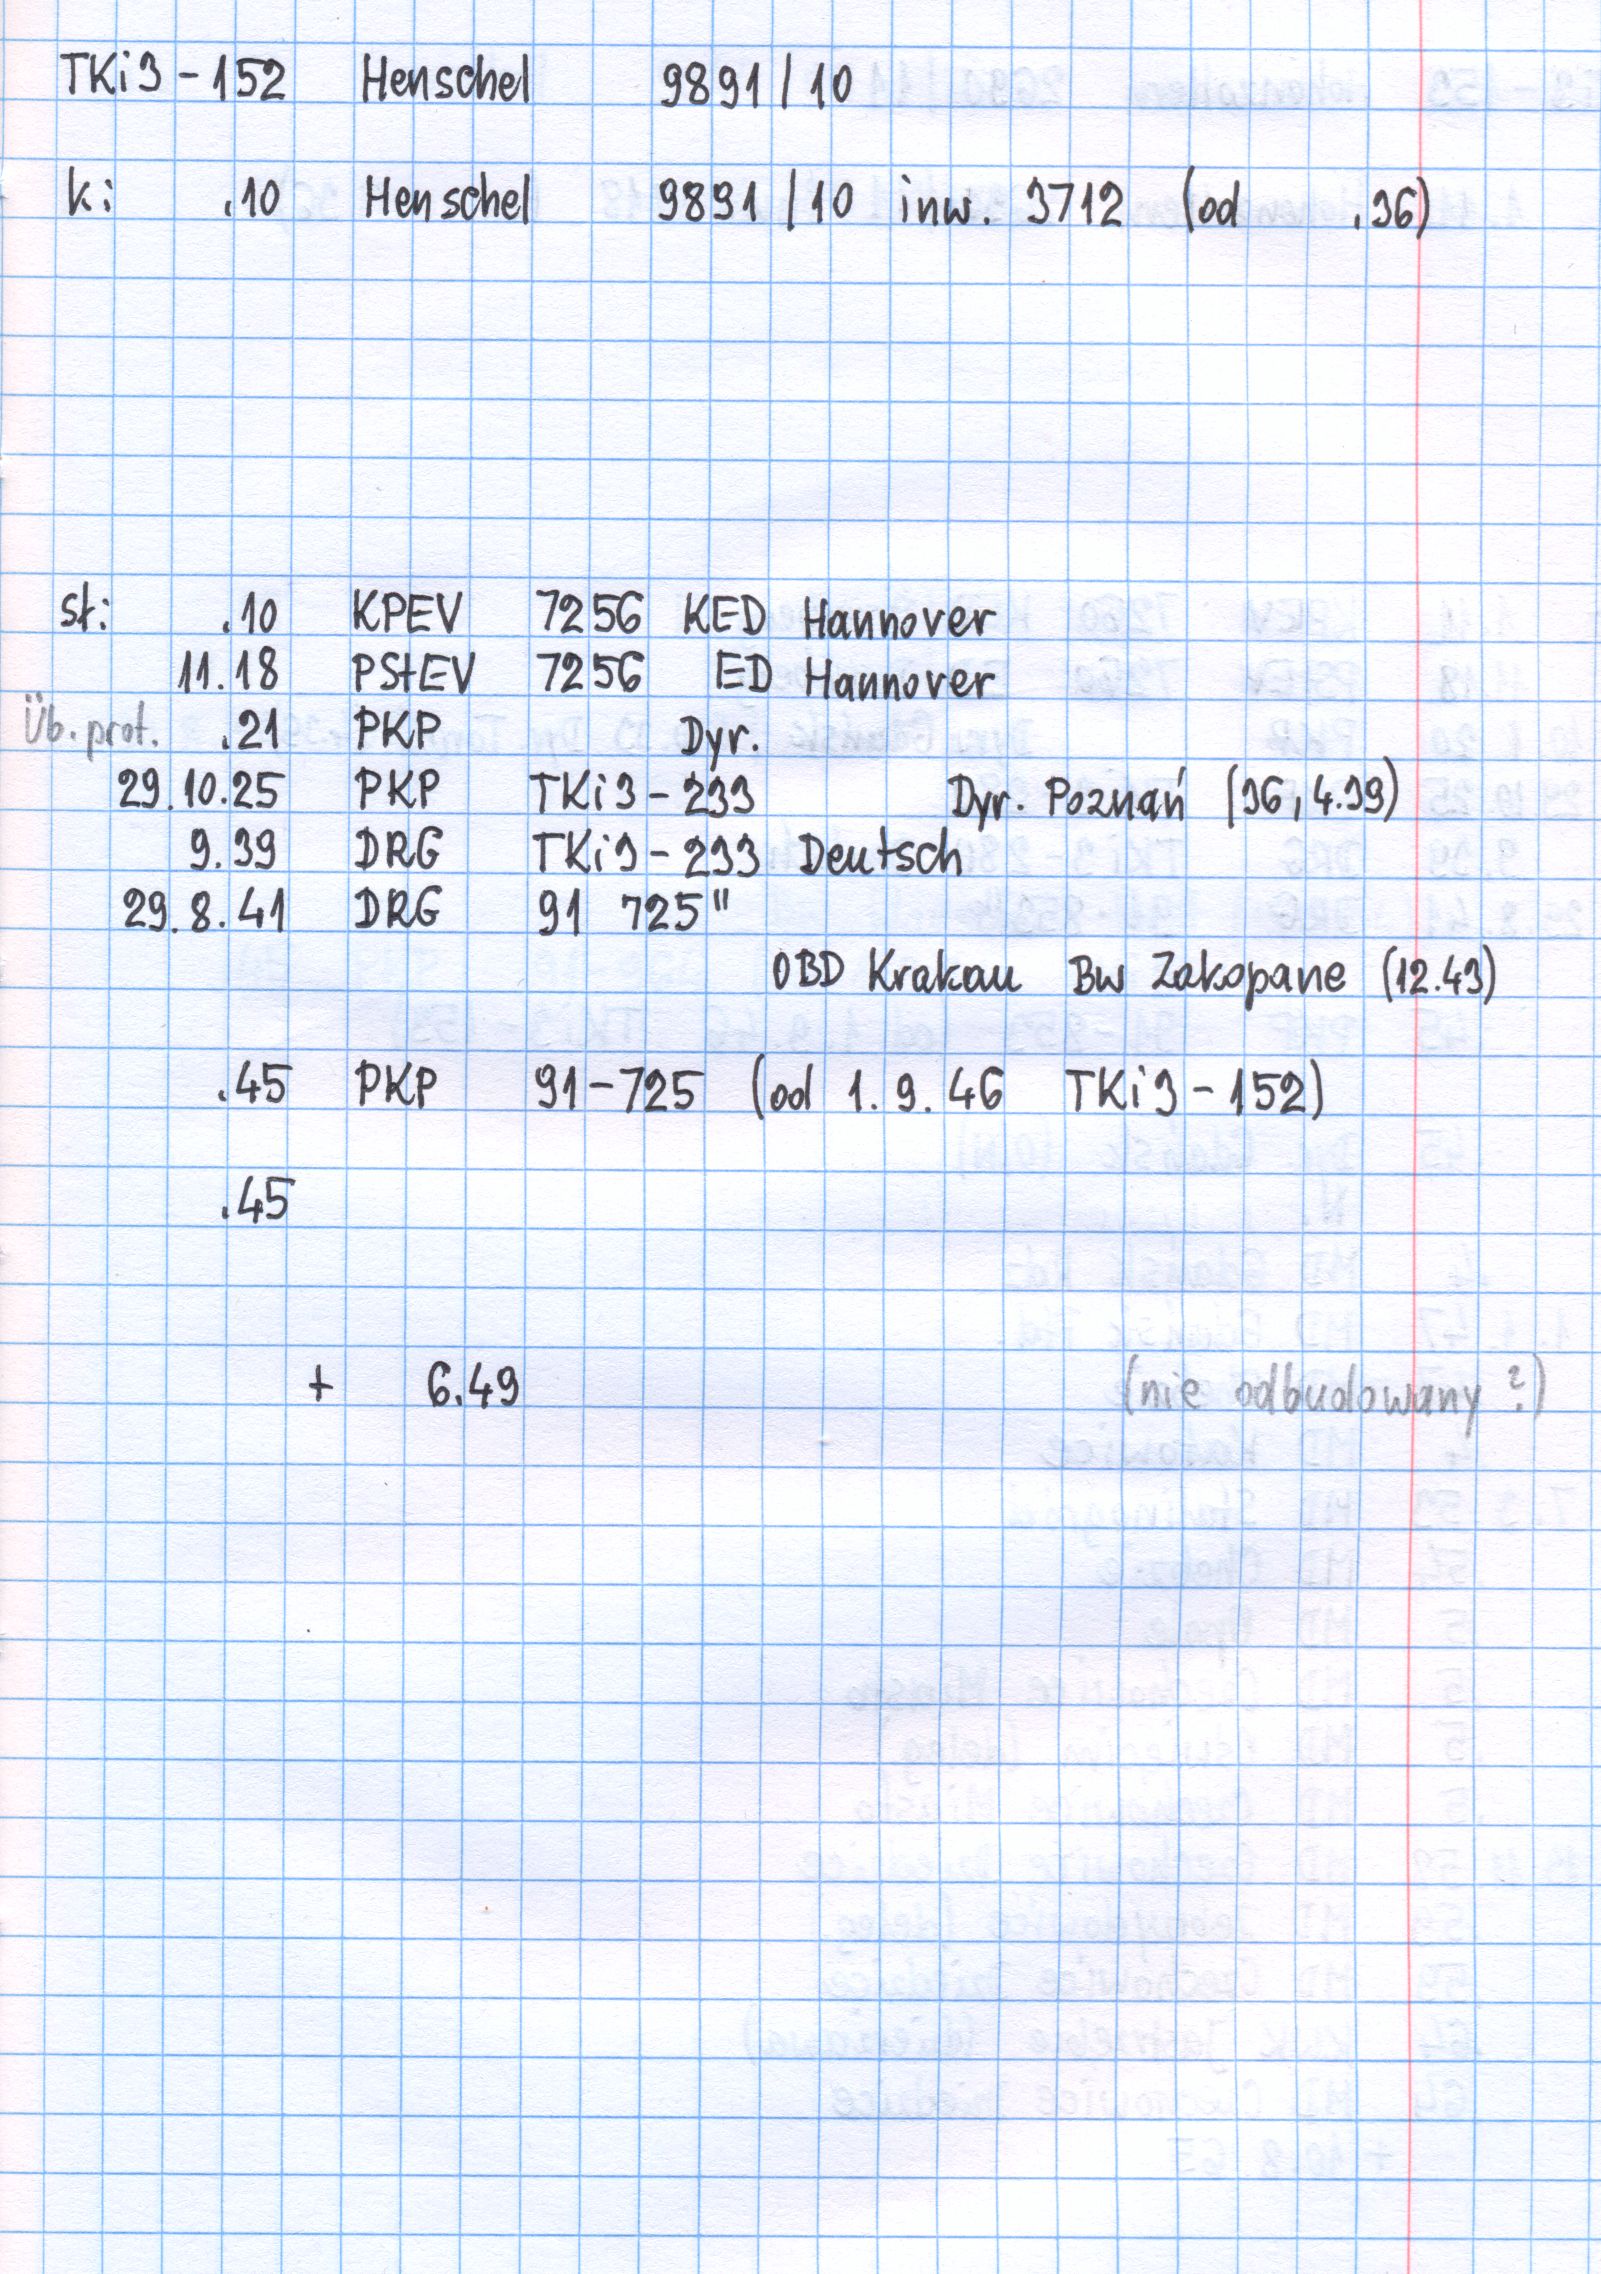 TKi3-152 Henschel 9891/10
ki .10 Henschel 9891/10 inw. 3712 (od .36)
st: .10 KPEV 7256 KED Hannover
11.18 PStEV 7256 ED Hannover
Üb. prot. .21 PKP Dyr.
29.10.25 PKP TKi3-233 Dyr. Poznań (36, 4.39)
9.39 DRG TKi3-233 Deutsch
29.8.41 DRG 91 725"
OBD Krakau Bw Zakopane (12.43)
.45 PKP 91-725 (od 1.9.46 TKi3-152)
.45
+ 6.49 (nie odbudowany ?)